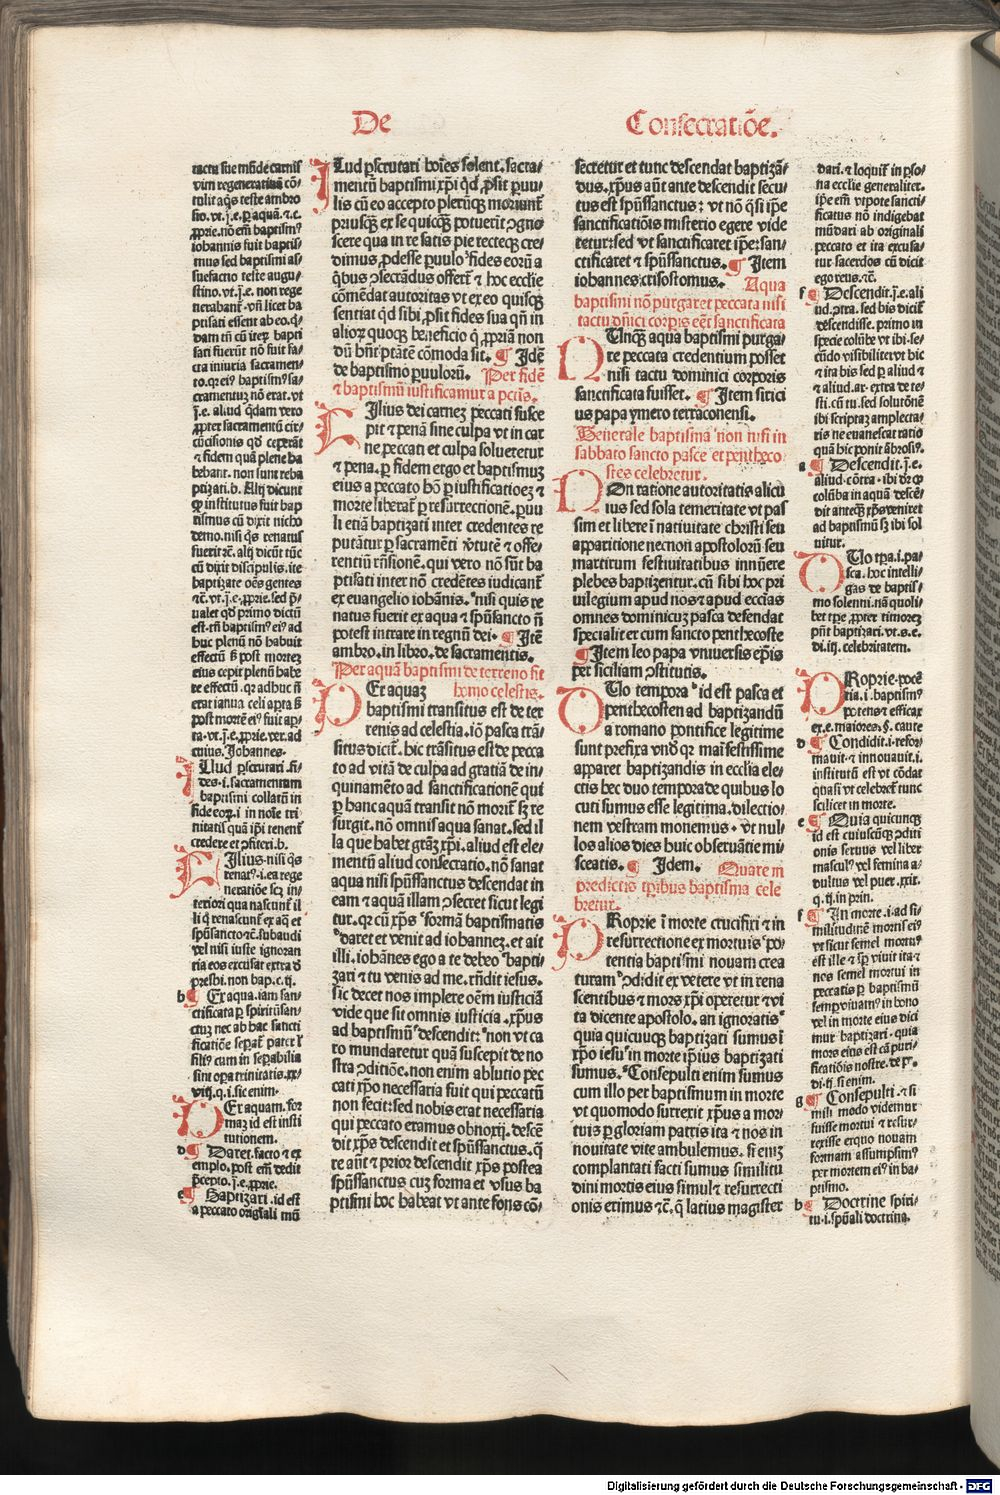 De
Consecratiōe.
tactu sue mūde carnis
vim regeneratiuā cō/
tulit aqs teste ambro
sio.vt.j.e.ꝑ aquā.⁊.c.
ꝓprie.nō em̄ baptism⁹
iohannis fuit baptis/
mus sed baptismi as/
suefactio teste augu/
stino.vt.j.e.non rege
nerabant̄.vn̄ licet ba
ptisati essent ab eo.q̄/
dam tn̄ cū iteꝝ bapti
sati fuerūt nō fuit fa/
cta iniuria sacramen/
to.qꝛ ei⁹ baptism⁹ sa/
cramentuꝫ nō erat.vt
j.e.aliud q̄dam vero
ꝓpter sacramentū cir/
cūcisionis qd̄ ceperāt
⁊ fidem quā plene ha
bebant.non sunt reba
ptizati.b. Alij dicunt
ꝙ institutus fuit bap
tismus cū dixit nicho
demo.nisi q̄s renatus
fuerit ⁊c. alij dicūt tūc
cū dixit discipulis.ite
baptizate oēs gentes
⁊c.vt.j.e.ꝓprie.sed p̄/
ualet qd̄ primo dictū
est.tn̄ baptism⁹ ei⁹ ad
huc plenū nō habuit
effectū s̄ post mortez
eius cepit plenū habe
re effectū.qꝛ adhuc n̄
erat ianua celi apta s̄
post mortē ei⁹ fuit ap/
ta.vt.j.e.ꝓprie.ver.ad
cuius.Johannes.
Illud ꝑscrutari.fi/
des.i.sacramentum
baptismi collatū in
fide eoꝝ.i in noīe tri
nitatis quā ip̄i tenent̄
credere et ꝓfiteri.b.
Filius.nisi q̄s
renat⁹.i.ea rege
neratiōe scꝫ in/
teriori qua nascunt̄ il
li q̄ renascunt̄ ex aq̄ et
spūsancto ⁊c.subaudi
vel nisi iuste ignoran
tia eos excusat extra d̄
presbi.non bap.c.ij.
b ¶ Ex aqua.iam san/
ctificata ꝑ spiritū san/
ctuꝫ nec ab hac sancti
ficatiōe seꝑat̄ pater l̄
fili⁹ cum in seꝑabilia
sint oꝑa trinitatis.xx/
viij.q.i.sic enim.
Per aquam.for
maꝫ id est insti
tutionem.
d ¶ Daret.facto ⁊ ex
emplo.post em̄ dedit
p̄cepto.j.e.ꝓprie.
e ¶ Baptizari.id est
a peccato oriḡali mū
Illud ꝑscrutari hoīes solent.sacra/
mentū baptismi xp̄i qd̄ ꝓsit ꝑuu/
lis cū eo accepto plerūqꝫ moriunt̄
priusqꝫ ex se quicqꝫ potuerit ↄgno
scere qua in re satis pie recteqꝫ cre/
dimus ꝓdesse ꝑuulo fides eorū a
q̄bus ↄsecrādus offert̄ ⁊ hoc ecclie
cōmēdat autoritas vt ex eo quisqꝫ
sentiat qd̄ sibi ꝓsit fides sua qn̄ in
alioꝝ quoqꝫ beneficio q̄ ꝓpriā non
dū hn̄t ptātē cōmoda sit. ¶ Idē
de baptismo ꝑuulorū. Per fidē
⁊ baptismū iustificamur a pctīs.
Filius dei carneꝫ peccati susce
pit ⁊ penā sine culpa vt in car
ne peccati et culpa solueretur
⁊ pena.ꝑ fidem ergo et baptismuꝫ
eius a peccato hō ꝑ iustificatioeꝫ ⁊
morte liberat̄ ꝑ resurrectionē.ꝑuu
li etiā baptizati inter credentes re
putātur ꝑ sacramēti v̄tutē ⁊ offe/
rentiū rn̄sionē.qui vero nō sūt ba
ptisati inter nō credētes iudicant̄
ex euangelio iohānis.nisi quis re
natus fuerit ex aqua ⁊ spūsancto n̄
potest intrare in regnū dei. ¶ Itē
ambro.in libro.de sacramentis.
Per aquā baptismi de terreno fit
homo celestis.
Per aquaꝫ
baptismi transitus est de ter
renis ad celestia.iō pasca trā/
situs dicit̄.hic trāsitus est de pecca
to ad vitā de culpa ad gratiā de in/
quinamēto ad sanctificationē qui
ꝑ hanc aquā transit nō morit̄ sꝫ re
surgit.nō omnis aqua sanat.sed il
la que habet grāꝫ xp̄i.aliud est ele/
mentū aliud consecratio.nō sanat
aqua nisi spūssanctus descendat in
eam ⁊ aquā illam ↄsecret sicut legi
tur.qꝛ cū xp̄s formā baptismatis
daret et venit ad iohannez.et ait
illi.iohānes ego a te debeo bapti/
zari ⁊ tu venis ad me.rn̄dit iesus.
sic decet nos implere oēm iusticiā
vide que sit omnis iusticia.xp̄us
ad baptismū descendit: non vt ca
ro mundaretur quā suscepit de no
stra ↄditiōe.non enim ablutio pec
cati xp̄o necessaria fuit qui peccatū
non fecit:sed nobis erat necessaria
qui peccato eramus obnoxij.descē
dit xp̄s descendit et spūssanctus.q̄
re aūt ⁊ prior descendit xp̄s postea
spūssanctus cuꝫ forma et vsus ba
ptismi hoc habeat vt ante fons cō/
secretur et tunc descendat baptizā/
dus.xp̄us aūt ante descendit secu/
tus est spūssanctus: vt nō q̄si ip̄e
sanctificatiōis misterio egere vide
retur:sed vt sanctificaret ip̄e:san/
ctificaret ⁊ spūssanctus. ¶ Item
iohannes crisostomus. Aqua
baptismi nō purgaret peccata nisi
tactu dn̄ici corꝑis eēt sanctificata
Nunqꝫ aqua baptismi purga/
re peccata credentium posset
nisi tactu dominici corporis
sanctificata fuisset. ¶ Item sirici
us papa ymero terraconensi.
Generale baptisma non nisi in
sabbato sancto pasce et pentheco
stes celebretur.
Non ratione autoritatis alicu
ius sed sola temeritate vt pas
sim et libere ī natiuitate christi seu
apparitione necnon apostolorū seu
martirum festiuitatibus innūere
plebes baptizentur.cū sibi hoc pri
uilegium apud nos ⁊ apud eccīas
omnes dominicuꝫ pasca defendat
specialit̄ et cum sancto penthecoste
¶ Item leo papa vniuersis ep̄is
per siciliam ↄstitutis.
Duo tempora id est pasca et
penthecosten ad baptizandū
a romano pontifice legitime
sunt prefixa vn̄ qꝛ maīfestissime
apparet baptizandis in ecclīa ele/
ctis hec duo tempora de quibus lo
cuti sumus esse legitima.dilectio/
nem vestram monemus.vt nul/
los alios dies huic obseruātie mi/
sceatis. ¶ Idem. Quare in
predictis tꝑibus baptisma cele
bretur.
Proprie ī morte crucifixi ⁊ in
resurrectione ex mortuis po/
tentia baptismi nouam crea
turam ↄdidit ex vetere vt in rena
scentibus ⁊ mors xp̄i operetur ⁊ vi
ta dicente apostolo.an ignoratis
quia quicuqꝫ baptizati sumus ī
xp̄o iesu in morte ip̄ius baptizati
sumus.Consepulti enim sumus
cum illo per baptismum in morte
vt quomodo surrexit xp̄us a mor/
tuis ꝑ gloriam patris ita ⁊ nos in
nouitate vite ambulemus.si eniꝫ
complantati facti sumus similitu
dini mortis eius simul ⁊ resurrecti
onis erimus ⁊c.q̄ latius magister
dari.⁊ loquit̄ in ꝑso/
na ecclie generaliter.
ip̄e em̄ vtpote sancti/
ficatus nō indigebat
mūdari ab originali
peccato et ita excusa/
tur sacerdos cū dicit
ego reus.⁊c.
f ¶ Descendit.j.e.ali
ud.ↄtra.sed bis dicit̄
descendisse.primo in
specie colūbe vt ibi.se/
cūdo visibiliter vt hic
⁊ ita bis sed ꝑ aliud ⁊
⁊ aliud.ar.extra de te/
sti.cū tu.sed solutionē
ibi scriptaꝫ amplecta/
ris ne euanescat ratio
quā hic ponit ābrosi⁹.
a ¶ Descendit.j.e.
aliud.cōtra.ibi dr̄ ꝙ
colūba in aquā descē/
dit anteqꝫ xp̄s veniret
ad baptismū sꝫ ibi sol
uitur.
Duo tꝑa.i.pa/
sca.hoc intelli/
gas de baptis/
mo solenni.nā quoli/
bet tꝑe ꝓpter timorez
pn̄t baptizari.vt.s.e.
di.iij.celebritatem.
Proprie.potē
tia.i.baptism⁹
potens ⁊ efficax
ex.e.maiores.§.caute
d ¶ Condidit.i.refor/
mauit.⁊ innouauit.i.
institutū est vt cōdat
quasi vt celebret̄ tunc
scilicet in morte.
e ¶ Quia quicunqꝫ
id est cuiuscūqꝫ ↄditi
onis seruus vel liber
mascul⁹ vel femina a/
dultus vel puer.xxij.
q.ij.in prin.
f ¶ In morte.i.ad si/
militudinē mortis ei⁹
vt sicut semel mortu⁹
est ille ⁊ sꝑ viuit ita ⁊
nos semel mortui in
peccatis ꝑ baptismū
semꝑ viuam⁹ in bono
vel in morte eius dici
mur baptizari.quia
mors eius est cā puri/
ficatiōis nostre.de p̄.
di.ij.si enim.
g ¶ Consepulti.⁊ si
mili modo videmur
fuisse mortui ⁊ resur/
rexisse ex quo nouam
formam assumpsim⁹
per mortem ei⁹ in ba/
ptismo.
h ¶ Doctrine spiri/
tu.i.spūali doctrina.
Digitalisierung gefördert durch die Deutsche Forschungsgemeinschaft - DFG